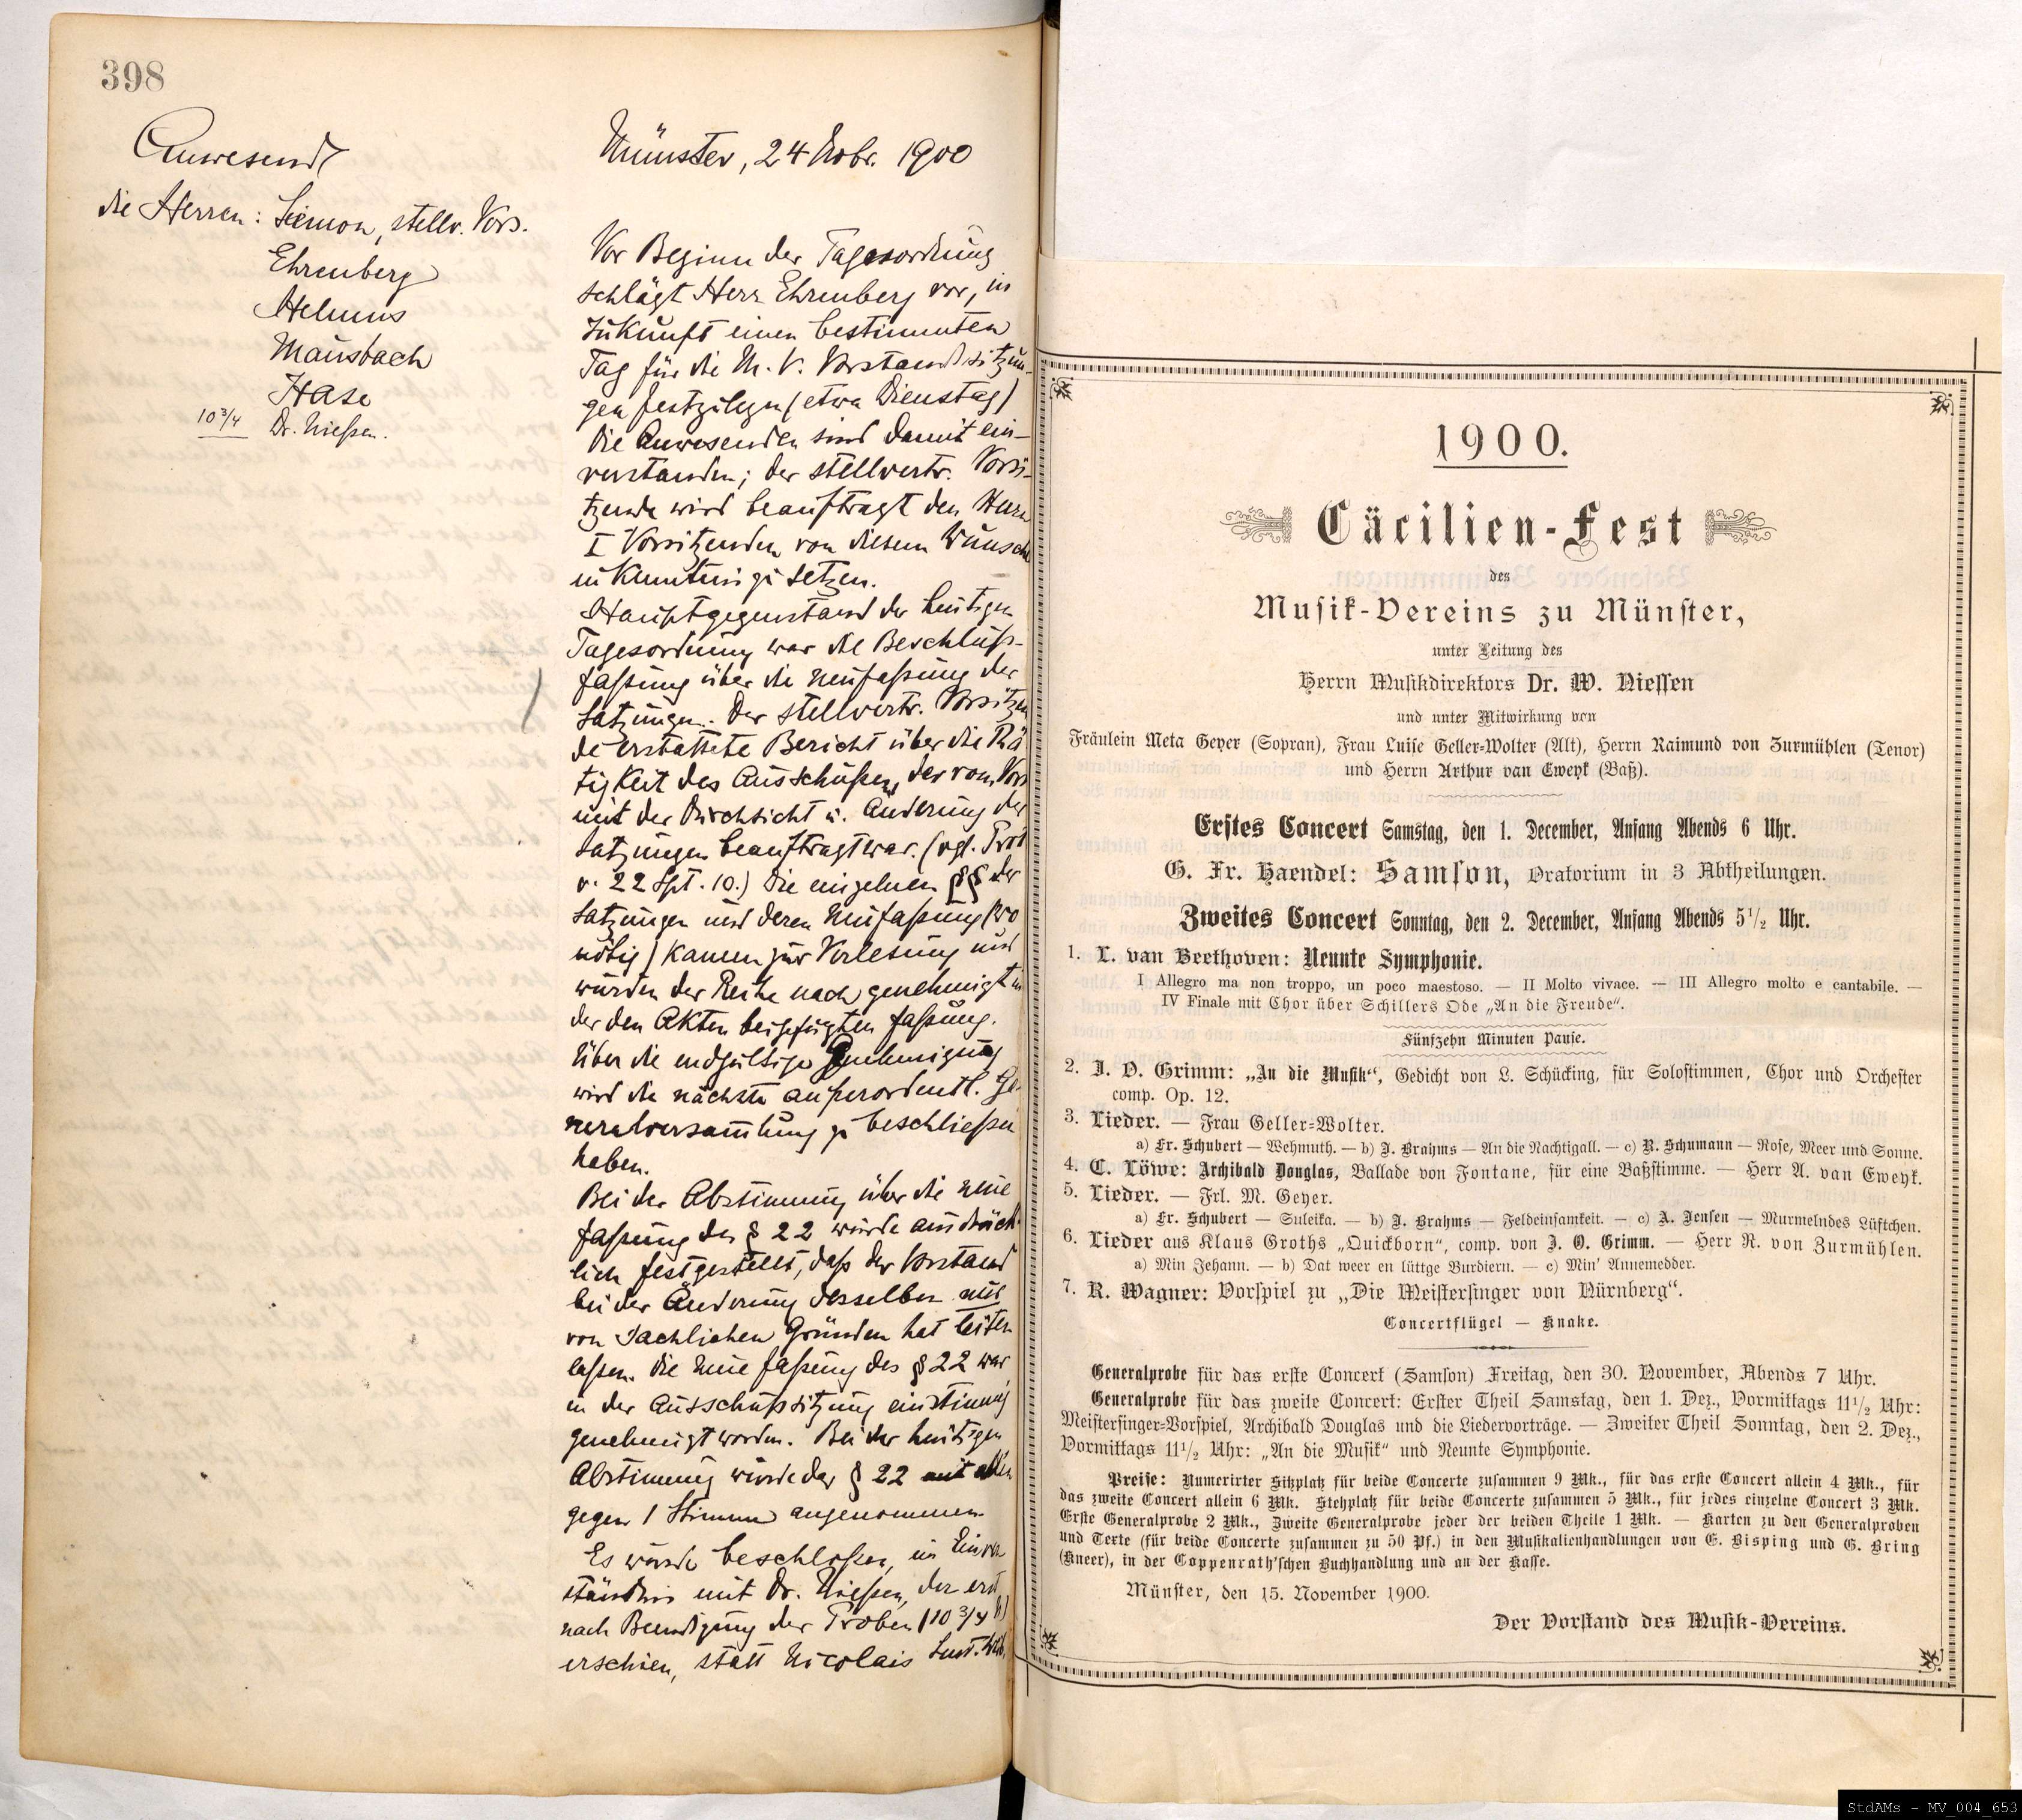 398
Anwesend
die Herren: Siemon, stellv. Vors.
Ehrenberg
Helmus
Mausbach
Hase
10 3/4 Dr. Nießen.
Münster, 24 Nobr. 1900
Vor Beginn der Tagesordnung
schlägt Herr Ehrenberg vor, in
Zukunft einen bestimmten
Tag für die M. V. Vorstandssitzun-
gen festzulegen (etwa Dienstag)
Die Anwesenden sind damit ein-
verstanden; der stellvertr. Vorsi-
tzende wird beauftragt den Herrn
I Vorsitzenden von diesem Wunsche
in Kenntnis zu setzen.
Hauptgegenstand der heutigen
Tagesordnung war die Beschluß-
faßung über die Neufaßung der
Satzungen. Der stellvertr. Vorsitzen
de erstattete Bericht über die Thä
tigkeit des Ausschußes, der vom Vors
mit der Durchsicht u. Änderung der
Satzungen beauftragt war. (vgl. Prot
v. 22 Spt. 10.) Die einzelnen §§ der
Satzungen und deren Neufaßung (wo
nötig) kamen zur Vorlesung und
wurden der Reihe nach genehmigt in
der den Akten beigefügten Faßung.
Über die endgültige Genehmigung
wird die nächste außerordentl. Ge-
neralversammlung zu beschließen
haben.
Bei der Abstimmung über die neue
Faßung des § 22 wurde ausdrück-
lich festgestellt, daß der Vorstand
bei der Änderung desselben nur
von sachlichen Gründen hat leiten
laßen. Die neue Faßung des § 22 war
in der Ausschußsitzung einstimmig
genehmigt worden. Bei der heutigen
Abstimmung wurde der § 22 mit allen
gegen 1 Stimme angenommen.
Es wurde beschloßen, im Einver
ständnis mit Dr. Nießen, der erst
nach Beendigung der Proben (10 3/4 h)
erschien, statt Nicolais Lust. Weib.
1900.
Cäcilien-Fest
des
Musik-Vereins zu Münster,
unter Leitung des
Herrn Musikdirektors Dr. W. Niessen
und unter Mitwirkung von
Fräulein Meta Geyer (Sopran), Frau Luise Geller-Wolter (Alt), Herrn Raimund von Zurmühlen (Tenor)
und Herrn Arthur van Eweyk (Baß).
Erstes Concert Samstag, den 1. December, Anfang Abends 6 Uhr.
G. Fr. Haendel: Samson, Oratorium in 3 Abtheilungen.
Zweites Concert Sonntag, den 2. December, Anfang Abends 5 1/2 Uhr.
1. L. van Beethoven: Neunte Symphonie.
I Allegro ma non troppo, un poco maestoso. — II Molto vivace. — III Allegro molto e cantabile. —
IV Finale mit Chor über Schillers Ode „An die Freude“.
Fünfzehn Minuten Pause.
2. J. O. Grimm: „An die Musik“, Gedicht von L. Schücking, für Solostimmen, Chor und Orchester
comp. Op. 12.
3. Lieder. — Frau Geller-Wolter.
a) Fr. Schubert — Wehmuth. — b) J. Brahms — An die Nachtigall. — c) R. Schumann — Rose, Meer und Sonne.
4. C. Löwe: Archibald Douglas, Ballade von Fontane, für eine Baßstimme. — Herr A. van Eweyk.
5. Lieder. — Frl. M. Geyer.
a) Fr. Schubert — Suleika. — b) J. Brahms — Feldeinsamkeit. — c) A. Jensen — Murmelndes Lüftchen.
6. Lieder aus Klaus Groths „Quickborn“, comp. von J. O. Grimm. — Herr R. von Zurmühlen.
a) Min Jehann. — b) Dat weer en lüttge Burdiern. — c) Min' Annemedder.
7. R. Wagner: Vorspiel zu „Die Meistersinger von Nürnberg“.
Concertflügel — Knake.
Generalprobe für das erste Concert (Samson) Freitag, den 30. November, Abends 7 Uhr.
Generalprobe für das zweite Concert: Erster Theil Samstag, den 1. Dez., Vormittags 11 1/2 Uhr:
Meistersinger-Vorspiel, Archibald Douglas und die Liedervorträge. — Zweiter Theil Sonntag, den 2. Dez.,
Vormittags 11 1/2 Uhr: „An die Musik“ und Neunte Symphonie.
Preise: Numerirter Sitzplatz für beide Concerte zusammen 9 Mk., für das erste Concert allein 4 Mk., für
das zweite Concert allein 6 Mk. Stehplatz für beide Concerte zusammen 5 Mk., für jedes einzelne Concert 3 Mk.
Erste Generalprobe 2 Mk., Zweite Generalprobe jeder der beiden Theile 1 Mk. — Karten zu den Generalproben
und Texte (für beide Concerte zusammen zu 50 Pf.) in den Musikalienhandlungen von E. Bisping und G. Bring
(Kneer), in der Coppenrath'schen Buchhandlung und an der Kasse.
Münster, den 15. November 1900.
Der Vorstand des Musik-Vereins.
StdAMs - MV_004_653